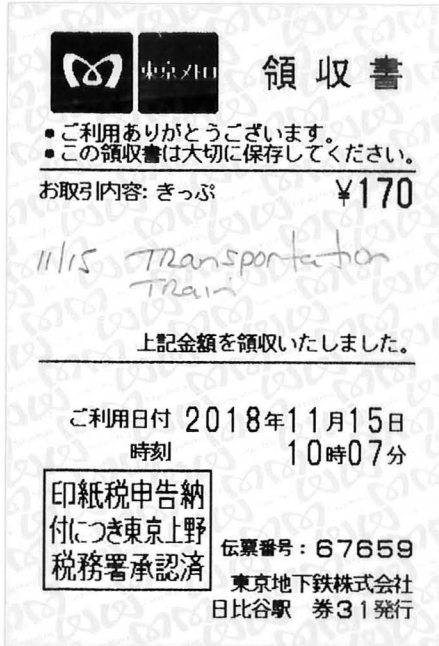 東京メトロ 領収書
• ご利用ありがとうございます。
• この領収書は大切に保存してください。
お取引内容: きっぷ ¥170
11/15 Transportation
Train
上記金額を領収いたしました。
ご利用日付 2018年11月15日
時刻 10時07分
印紙税申告納
付につき東京上野
税務署承認済
伝票番号：67659
東京地下鉄株式会社
日比谷駅 券31発行